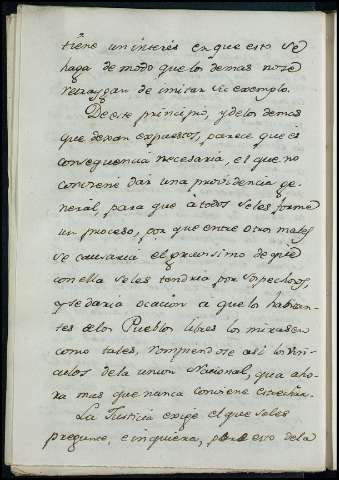 tiene un interés en que esto se
haga de modo que los demas no se
retraygan de imitar su exemplo.
De este principio, y de los demas
que dexan expuestos, parece que es
consequencia necesaria, el que no
conviene dar una providencia ge-
neral, para que á todos se les forme
un proceso, por que entre otros males
se causaria el gravisimo de que
con ella se les tendria por sospechosos,
y se daria ocacion a que los habitan-
tes de los Pueblos libres los mirasen
como tales, rompendose asi los vin-
culos de la union Nacional, que aho-
ra mas que nunca conviene estrechar.
La Justicia exige el que se les
pregunte, e inquiera, pero esto de la